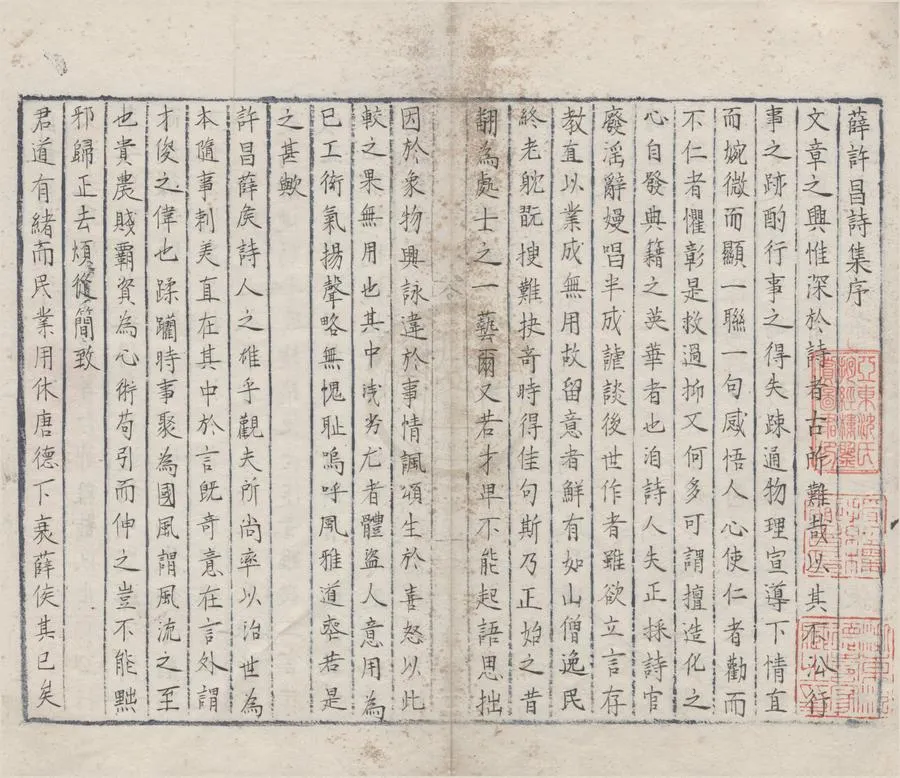 薛許昌詩集序
文章之興惟深於詩者古所難哉以其不沿行
事之跡酌行事之得失疎通物理宣導下情直
而婉微而顯一聯一句感悟人心使仁者勸而
不仁者懼彰是救過抑又何多可謂擅造化之
心自發典籍之英華者也洎詩人失正採詩官
廢淫辭嫚唱半成謔談後世作者雖欲立言存
教直以業成無用故留意者鮮有如山僧逸民
終老耽翫搜難抉奇時得佳句斯乃正始之音
翻為處士之一藝爾又若才卑不能起語思拙
因於象物興詠違於事情諷頌生於喜怒以此
較之果無用也其中淺劣尤者體盜人意用為
已工衒氣揚聲略無愧耻嗚呼風雅道喪若是
之甚歟
許昌薛矦詩人之雄乎觀夫所尚率以治世為
本隨事刺美直在其中於言既奇意在言外謂
才俊之偉也蹂躪時事聚為國風謂風流之至
也貴農賤霸資為心術苟引而伸之豈不能黜
邪歸正去煩從簡致
君道有緒而民業用休唐德下衰薛侯其已矣